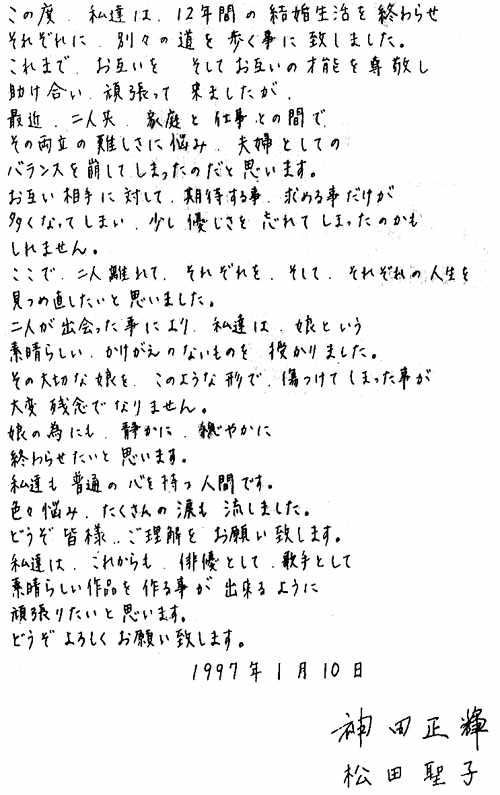 この度、私達は、12年間の結婚生活を終わらせ
それぞれに、別々の道を歩く事に致しました。
これまで、お互いを そしてお互いの才能を尊敬し
助け合い、頑張って 来ましたが、
最近、二人共、家庭と仕事との間で、
その両立の難しさに悩み、夫婦としての
バランスを崩してしまったのだと思います。
お互い相手に対して、期待する事、求める事だけが
多くなってしまい、少し優しさを忘れてしまったのかも
しれません。
ここで、二人離れて、それぞれを、そして、それぞれの人生を
見つめ直したいと思いました。
二人が出会った事により、私達は、娘という
素晴らしい、かけがえのないものを授かりました。
その大切な娘を、このような形で、傷つけてしまった事が
大変残念でなりません。
娘の為にも、静かに、穏やかに
終わらせたいと思います。
私達も普通の心を持つ人間です。
色々悩み、たくさんの涙も流しました。
どうぞ皆様、ご理解をお願い致します。
私達は、これからも、俳優として、歌手として
素晴らしい作品を作る事が出来るように
頑張りたいと思います。
どうぞよろしくお願い致します。
1997年1月10日
神田正輝
松田聖子